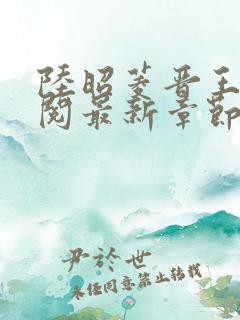 陸昭菱晋王
閱最新章節
尹於世
未经同意禁止转载